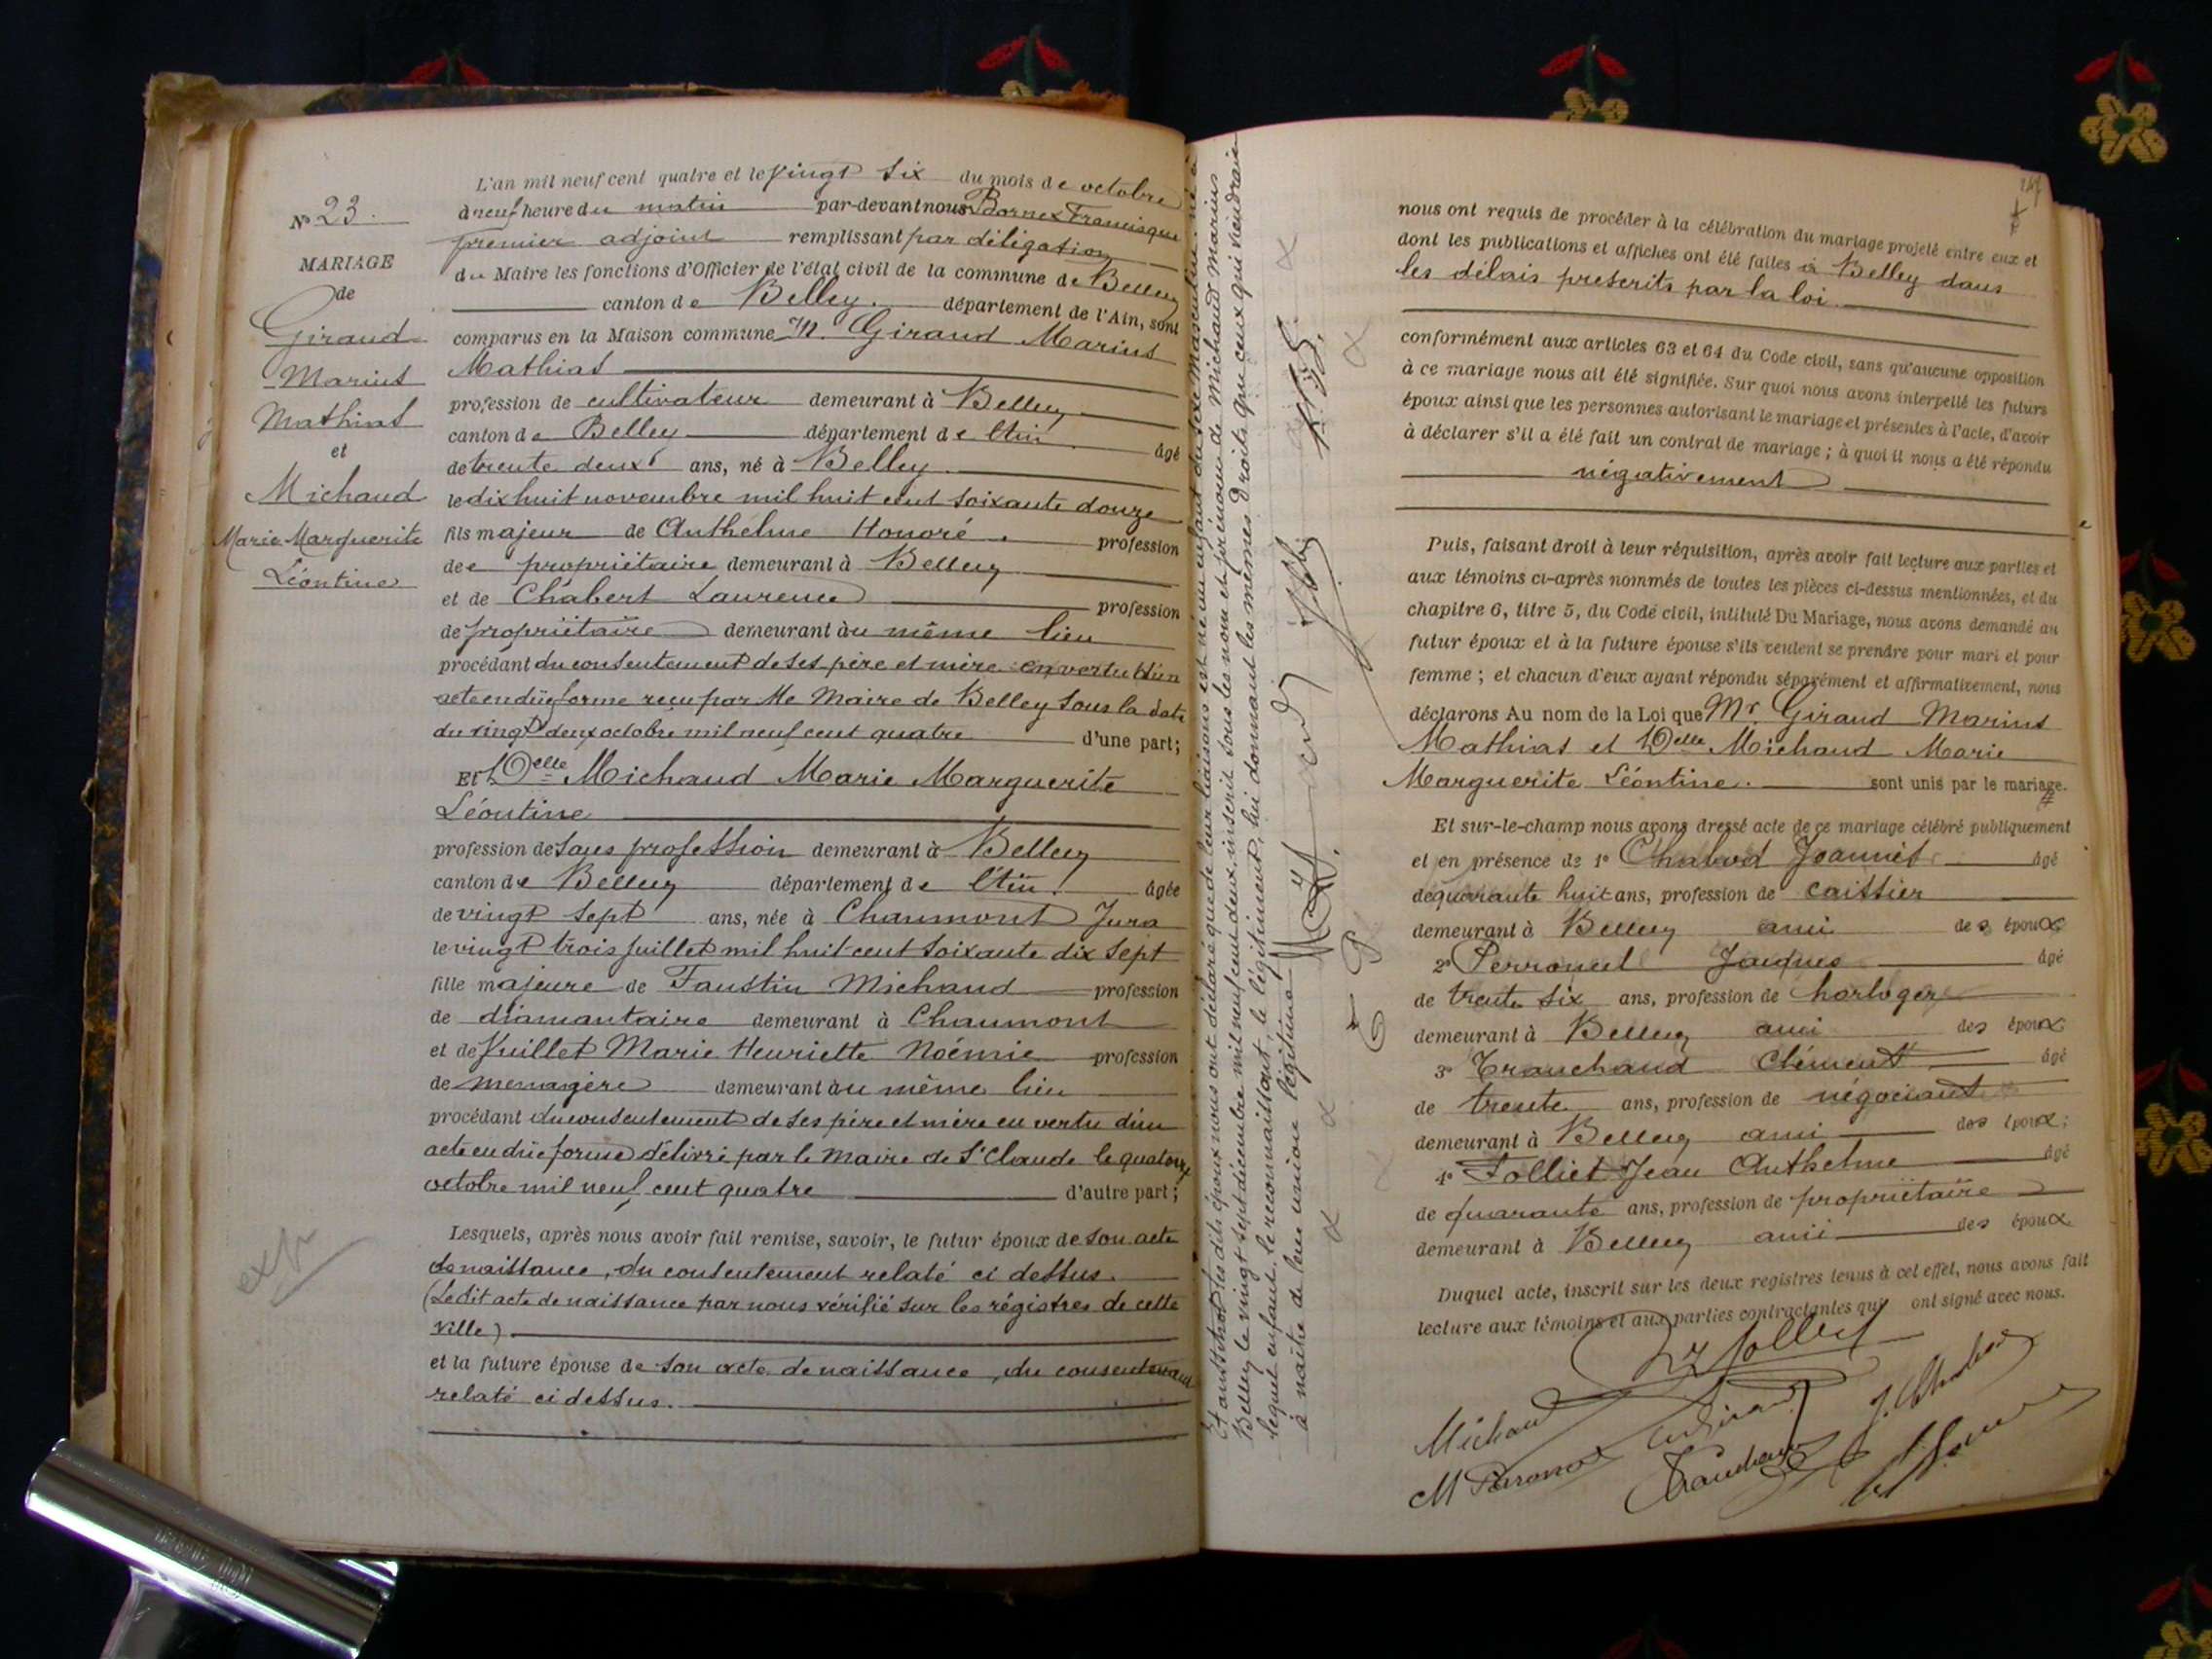 N° 23.
MARIAGE
de
Giraud
Marius
Mathias
et
Michaud
Marie Marguerite
Léontine
exp
L'an mil neuf cent quatre et le vingt six du mois de octobre
à neuf heure du matin par-devant nous Bornex Francisque
premier adjoint remplissant par déligation
du Maire les fonctions d'Officier de l'état civil de la commune de Belley
canton de Belley. département de l'Ain, sont
comparus en la Maison commune M. Giraud Marius
Mathias
profession de cultivateur demeurant à Belley
canton de Belley département de l'Ain âgé
de trente deux ans, né à Belley
le dix huit novembre mil huit cent soixante douze
fils majeur de Anthelme Honoré. profession
de propriétaire demeurant à Belley
et de Chabert Laurence profession
de propriétaire demeurant au même lieu
procédant du consentement de ses père et mère en vertu d'un
acte en düe forme reçu par Me Maire de Belley sous la date
du vingt deux octobre mil neuf cent quatre d'une part;
Et Delle Michaud Marie Marguerite
Léontine
profession de sans profession demeurant à Belley
canton de Belley département de l'Ain. âgée
de vingt sept ans, née à Chaumont Jura
le vingt trois juillet mil huit cent soixante dix sept
fille majeure de Faustin Michaud profession
de diamantaire demeurant à Chaumont
et de Vuillet Marie Henriette Noémie profession
de menagère demeurant au même lieu
procédant du consentement de ses père et mère en vertu d'un
acte en düe forme délivré par le Maire de St Claude le quatorze
octobre mil neuf cent quatre d'autre part;
Lesquels, après nous avoir fait remise, savoir, le futur époux de son acte
de naissance, du consentement relaté ci dessus.
(Ledit acte de naissance par nous vérifié sur les régistres de cette
ville)
et la future épouse de son acte de naissance, du consentement
relaté ci dessus.
Et aussitôt les dits époux nous ont déclaré que de leur liaisons est né un enfant du sexe masculin, né à
Belley le vingt sept décembre mil neuf cent deux, inscrit sous les nom et prénoms de Michaud Marius
lequel enfant, le reconnaissant, le légitiment, lui donnant les mêmes droits que ceux qui viendraient
à naître de leur union légitime
nous ont requis de procéder à la célébration du mariage projeté entre eux et
dont les publications et affiches ont été faites à Belley dans
les délais prescrits par la loi.
conformément aux articles 63 et 64 du Code civil, sans qu'aucune opposition
à ce mariage nous ait été signifiée. Sur quoi nous avons interpellé les futurs
époux ainsi que les personnes autorisant le mariage et présentes à l'acte, d'avoir
à déclarer s'il a été fait un contrat de mariage; à quoi il nous a été répondu
négativement
Puis, faisant droit à leur réquisition, après avoir fait lecture aux parties et
aux témoins ci-après nommés de toutes les pièces ci-dessus mentionnées, et du
chapitre 6, titre 5, du Code civil, intitulé Du Mariage, nous avons demandé au
futur époux et à la future épouse s'ils veulent se prendre pour mari et pour
femme; et chacun d'eux ayant répondu séparément et affirmativement, nous
déclarons Au nom de la Loi que Mr Giraud Marius
Mathias et Delle Michaud Marie
Marguerite Léontine. sont unis par le mariage.
Et sur-le-champ nous avons dressé acte de ce mariage célébré publiquement
et en présence de 1° Chabod Joannès âgé
de quarante huit ans, profession de caissier
demeurant à Belley ami des époux
2° Jacques âgé
de trente six ans, profession de horloger
demeurant à Belley ami des époux
3° Tranchand Clément âgé
de trente ans, profession de négociant
demeurant à Belley ami des époux;
4° Folliet Jean Anthelme âgé
de quarante ans, profession de propriétaire
demeurant à Belley ami des époux
Duquel acte, inscrit sur les deux registres tenus à cet effet, nous avons fait
lecture aux témoins et aux parties contractantes qui ont signé avec nous.
Folliet
Michaud